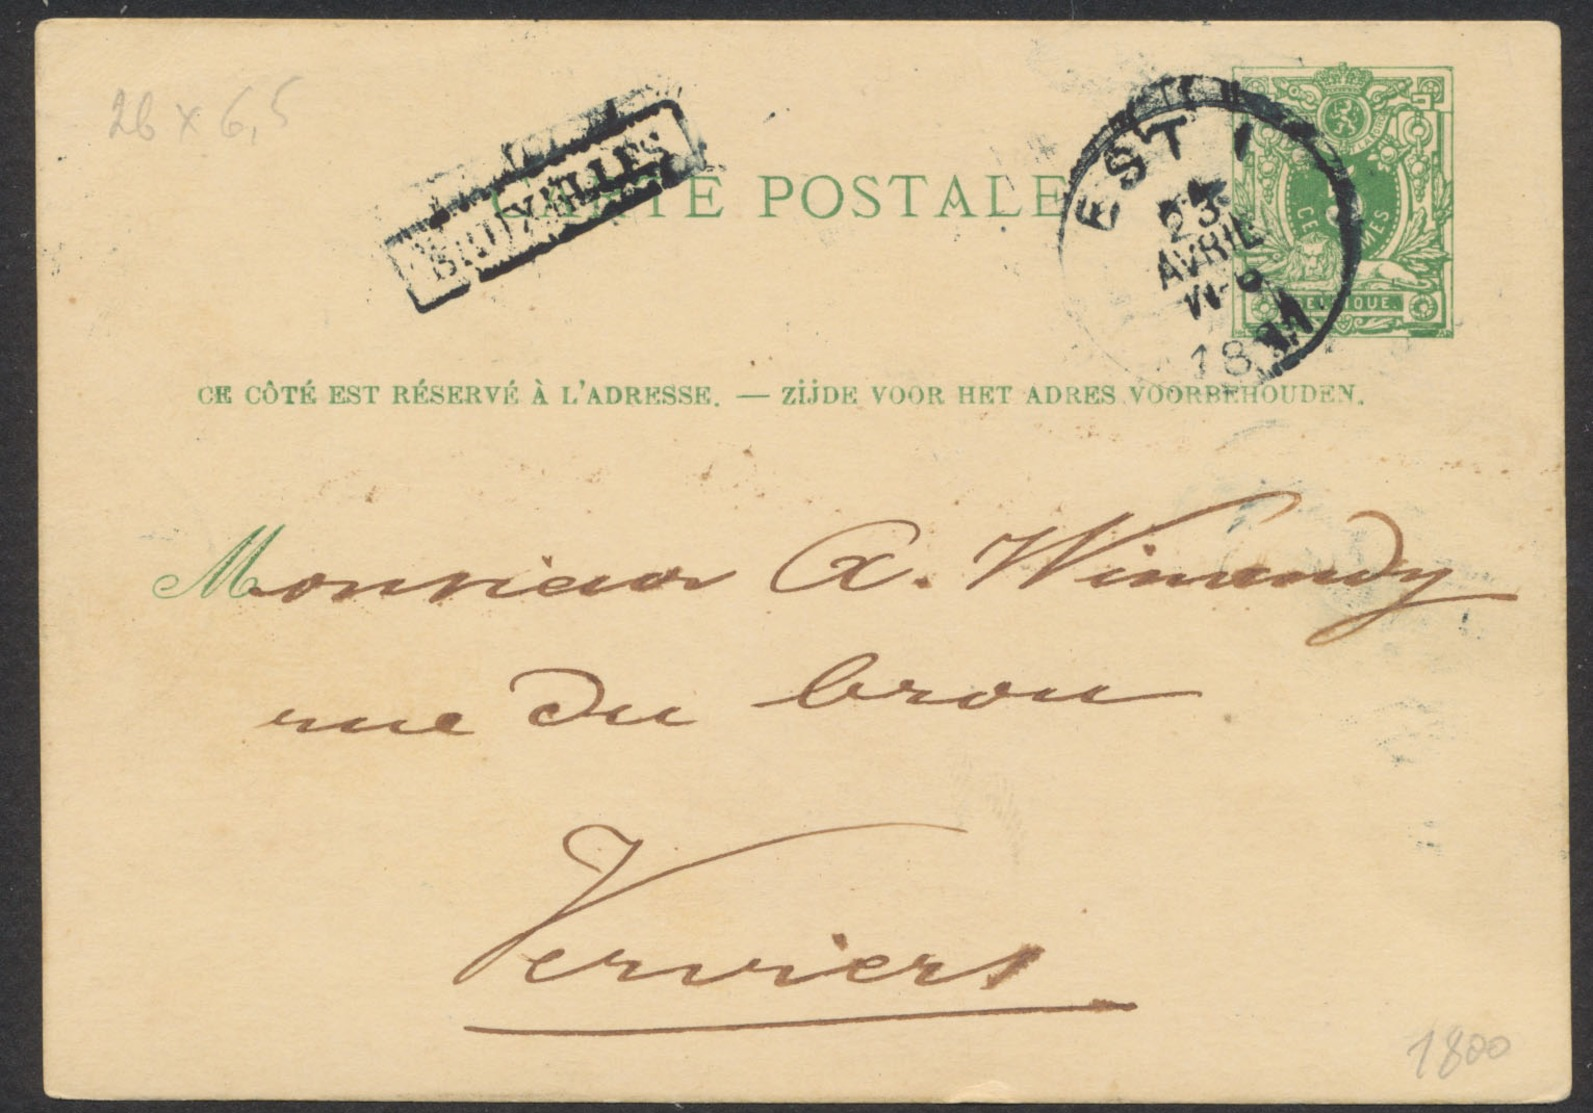 26 x 6,5
BRUXELLES
CARTE POSTALE
EST 1
23
AVRIL
18
CE MES
BELGIQUE.
CE CÔTÉ EST RÉSERVÉ À L'ADRESSE. — ZIJDE VOOR HET ADRES VOORBEHOUDEN.
Monsieur A. Wimandy
rue du brou
Verviers
1800